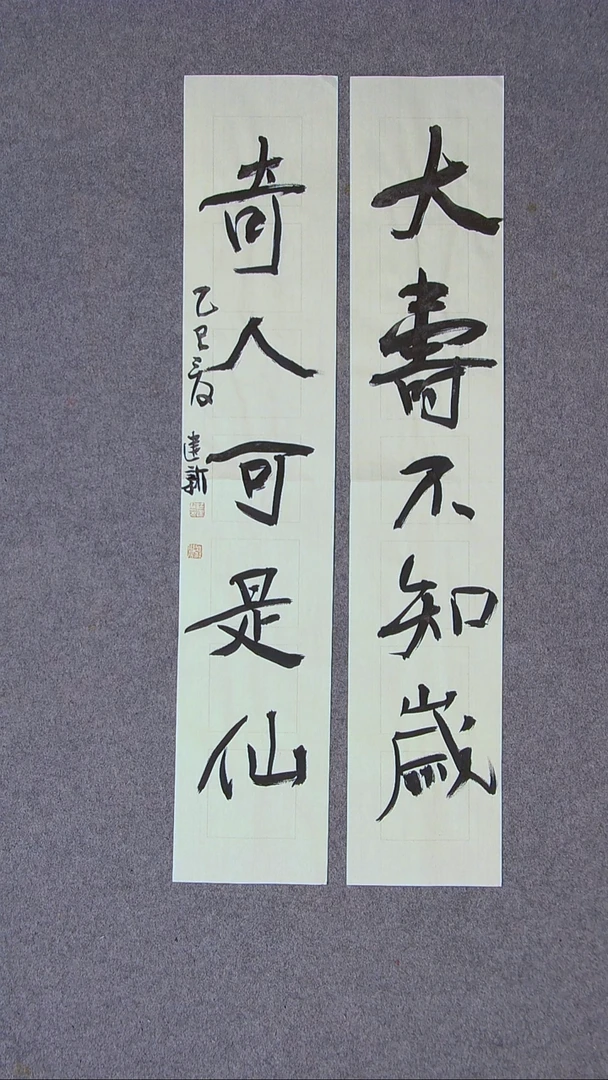 大壽不知歲
奇人可是仙
乙巳夏 建新